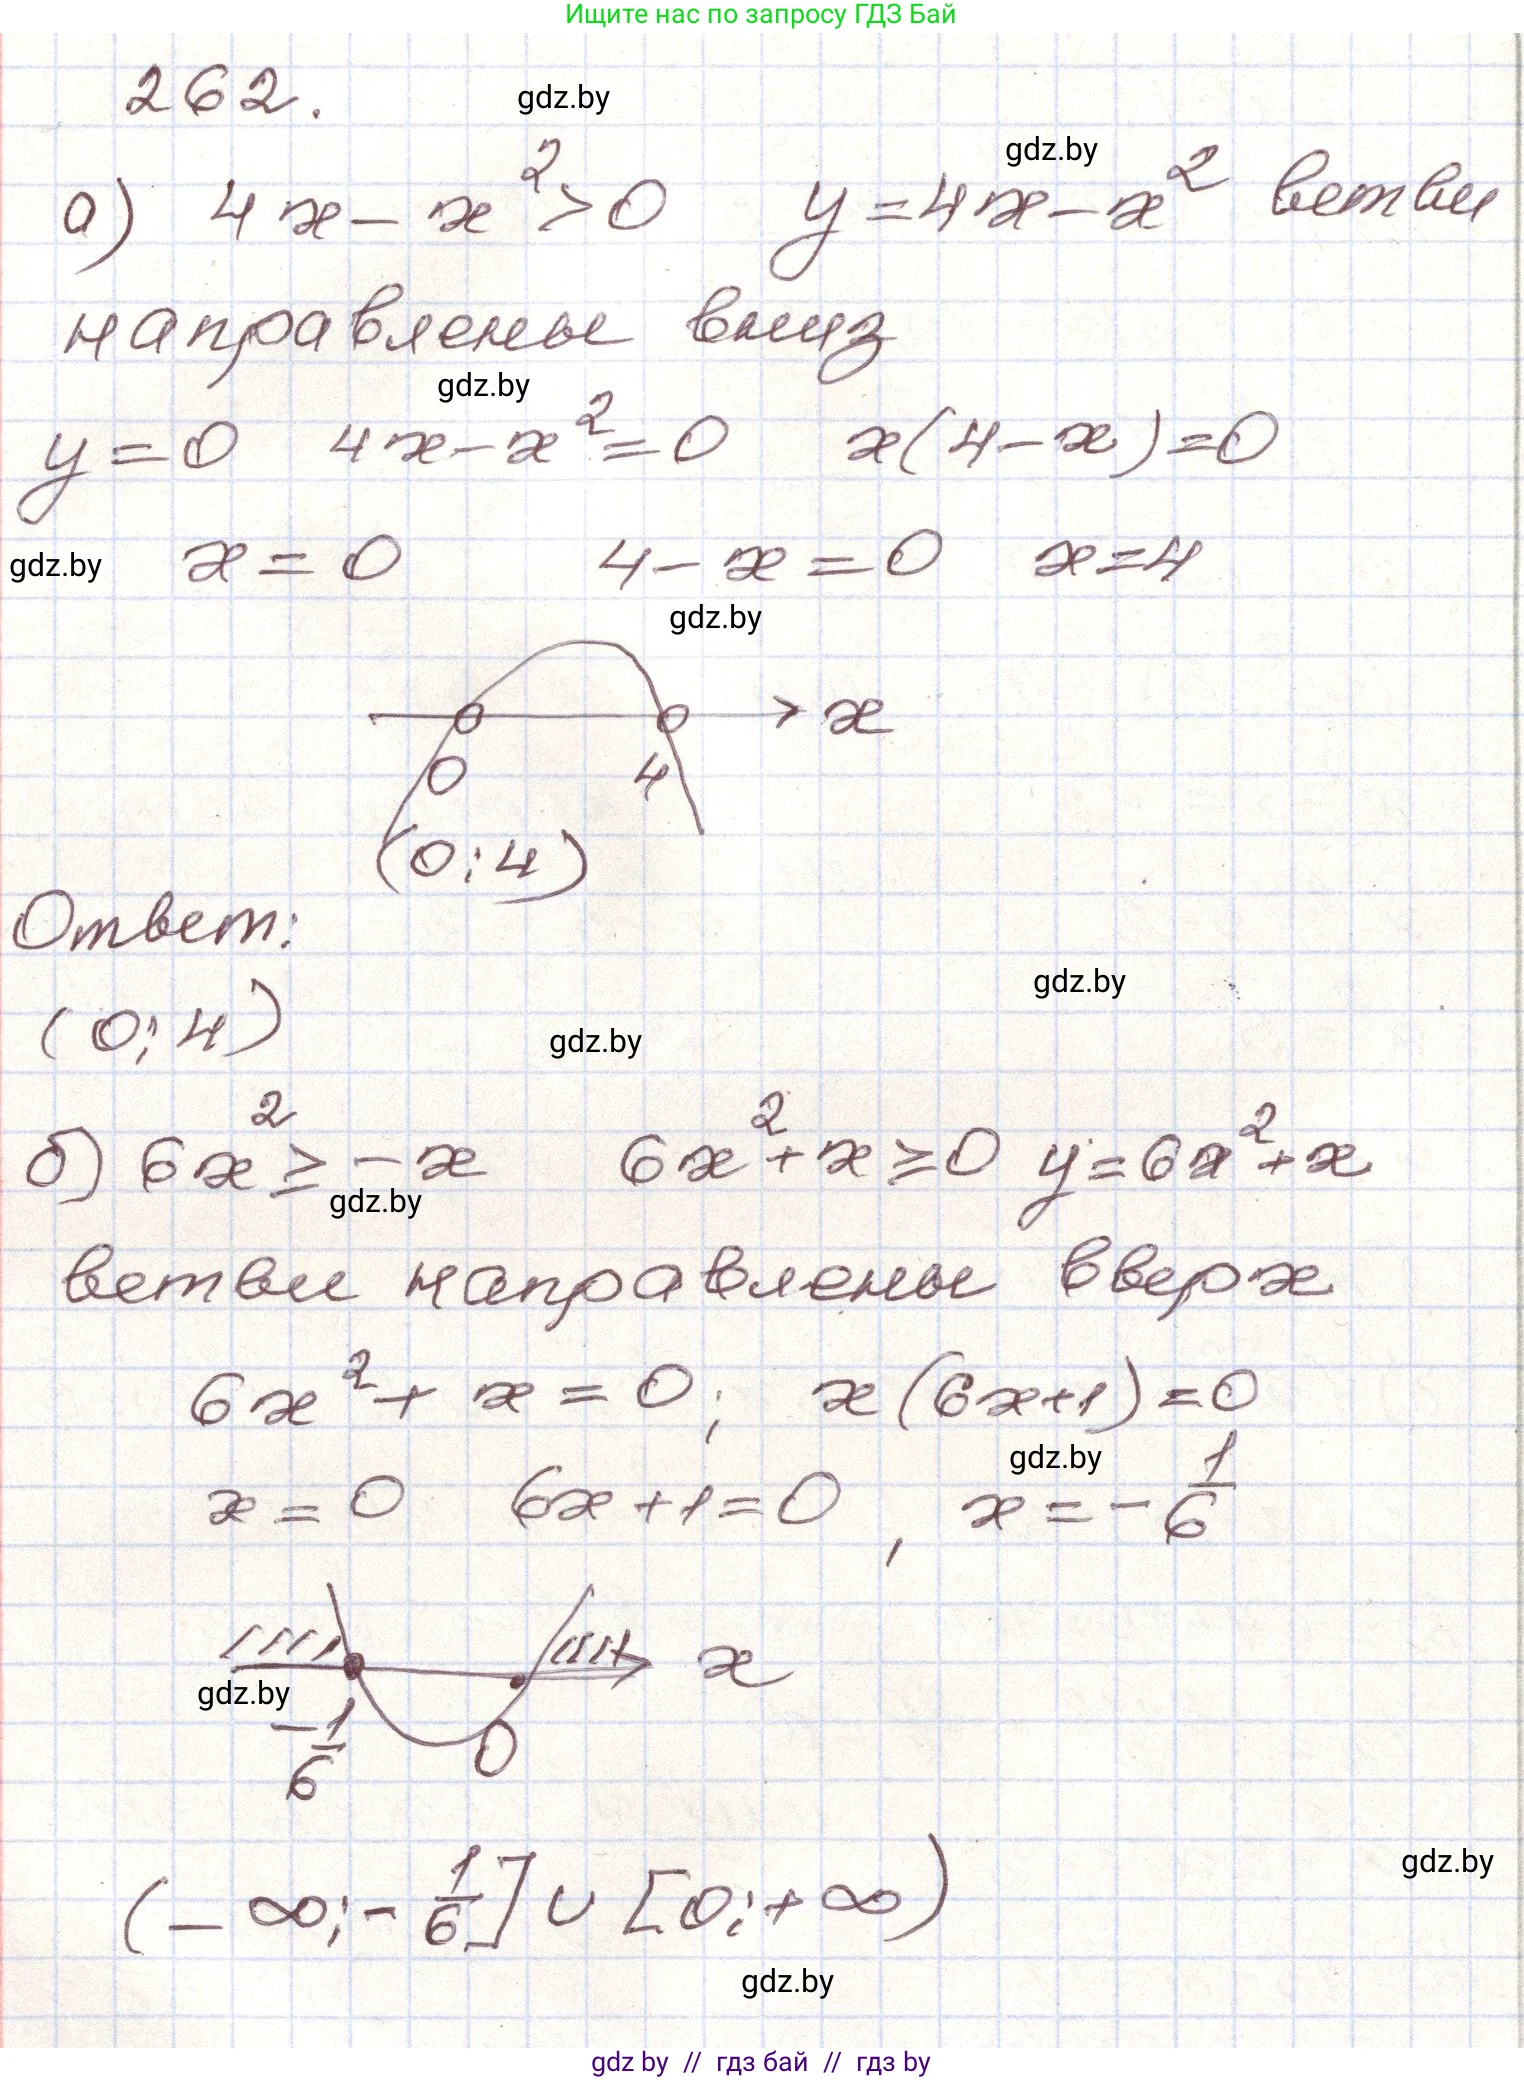 Ищите нас по запросу ГДЗ Бай
262.
gdz.by
а) 4x - x² > 0 y = 4x - x² ветви
gdz.by
направлены вниз
gdz.by
y = 0 4x - x² = 0 x(4 - x) = 0
gdz.by x = 0 4 - x = 0 x = 4
gdz.by
x
0 4
(0; 4)
Ответ:
gdz.by
(0; 4)
gdz.by
б) 6x² ≥ -x 6x² + x ≥ 0 y = 6x² + x
gdz.by
ветви направлены вверх
6x² + x = 0; x(6x+1) = 0
gdz.by
x = 0 6x + 1 = 0, x = -1/6
x
gdz.by
-1/6 0
gdz.by
(-∞; -1/6] ∪ [0; +∞)
gdz.by
gdz by // гдз бай // гдз by